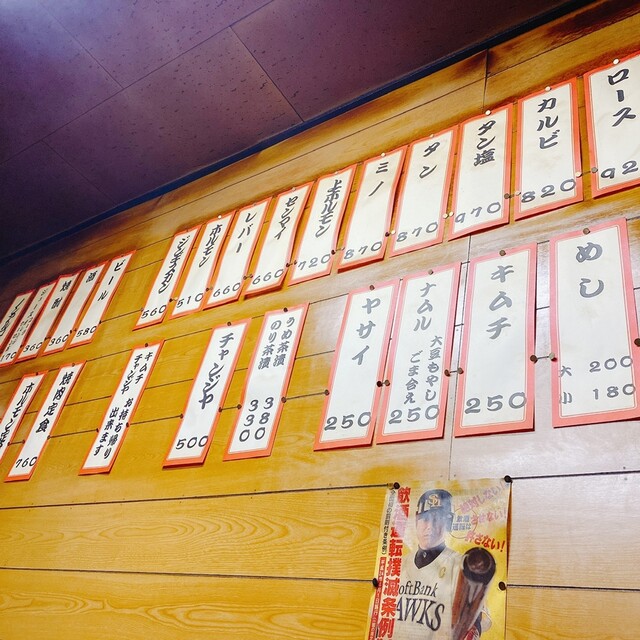 ロース
920
カルビ
820
タン塩
970
タン
870
ミノ
870
上ホルモン
720
センマイ
660
レバー
660
ホルモン
510
560
ビール
580
酒
360
焼酎
360
170
めし
大 200
小 180
キムチ
250
ナムル
大豆もやし
ごま合え
250
ヤサイ
250
うめ茶漬
のり茶漬
380
330
チャンジャ
500
キムチ
チャンジャ
お持ち帰り
出来ます
焼肉定食
760
飲酒運転撲滅条例
許さない!
SoftBank
HAWKS